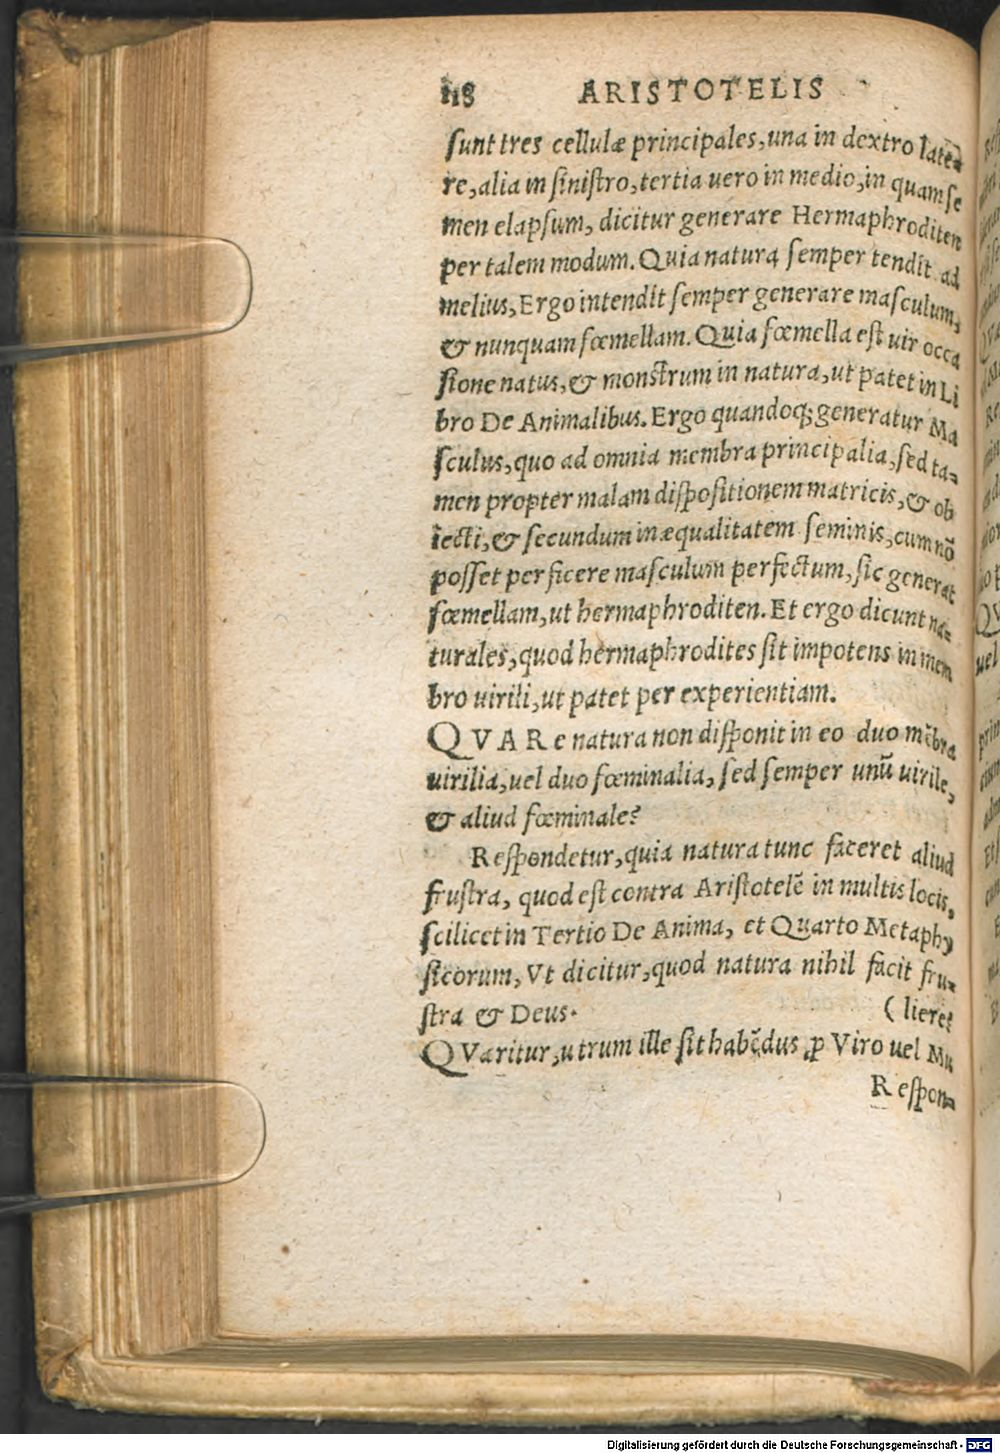 118 ARISTOTELIS
sunt tres cellulæ principales, una in dextro late=
re, alia in sinistro, tertia uero in medio, in quam se
men elapsum, dicitur generare Hermaphroditen
per talem modum. Quia natura semper tendit ad
melius, Ergo intendit semper generare masculum,
& nunquam fœmellam. Quia fœmella est uir occa
sione natus, & monstrum in natura, ut patet in Li
bro De Animalibus. Ergo quandoq; generatur Ma
sculus, quo ad omnia membra principalia, sed ta=
men propter malam dispositionem matricis, & ob
iecti, & secundum inæqualitatem seminis, cum nō
posset perficere masculum perfectum, sic generat
fœmellam, ut hermaphroditen. Et ergo dicunt na=
turales, quod hermaphrodites sit impotens in mem
bro uirili, ut patet per experientiam.
QVARe natura non disponit in eo duo mēbra
uirilia, uel duo fœminalia, sed semper unū uirile,
& aliud fœminale?
Respondetur, quia natura tunc faceret aliud
frustra, quod est contra Aristotelē in multis locis,
scilicet in Tertio De Anima, et Quarto Metaphy
sicorum, Vt dicitur, quod natura nihil facit fru=
stra & Deus. (liere?
QVæritur, utrum ille sit habēdus ꝓ Viro uel Mu
Respon=
Digitalisierung gefördert durch die Deutsche Forschungsgemeinschaft - DFG